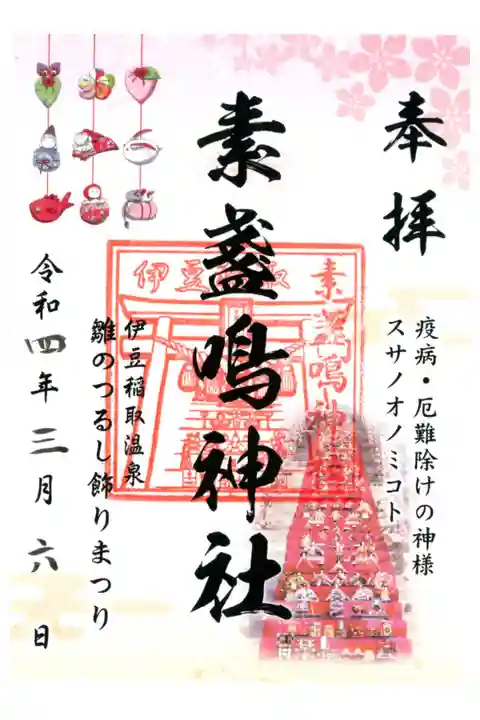 奉拝
疫病・厄難除けの神様
スサノオノミコト
素盞鳴神社
素盞鳴神社
伊豆稲取
伊豆稲取温泉
雛のつるし飾りまつり
令和四年三月六日